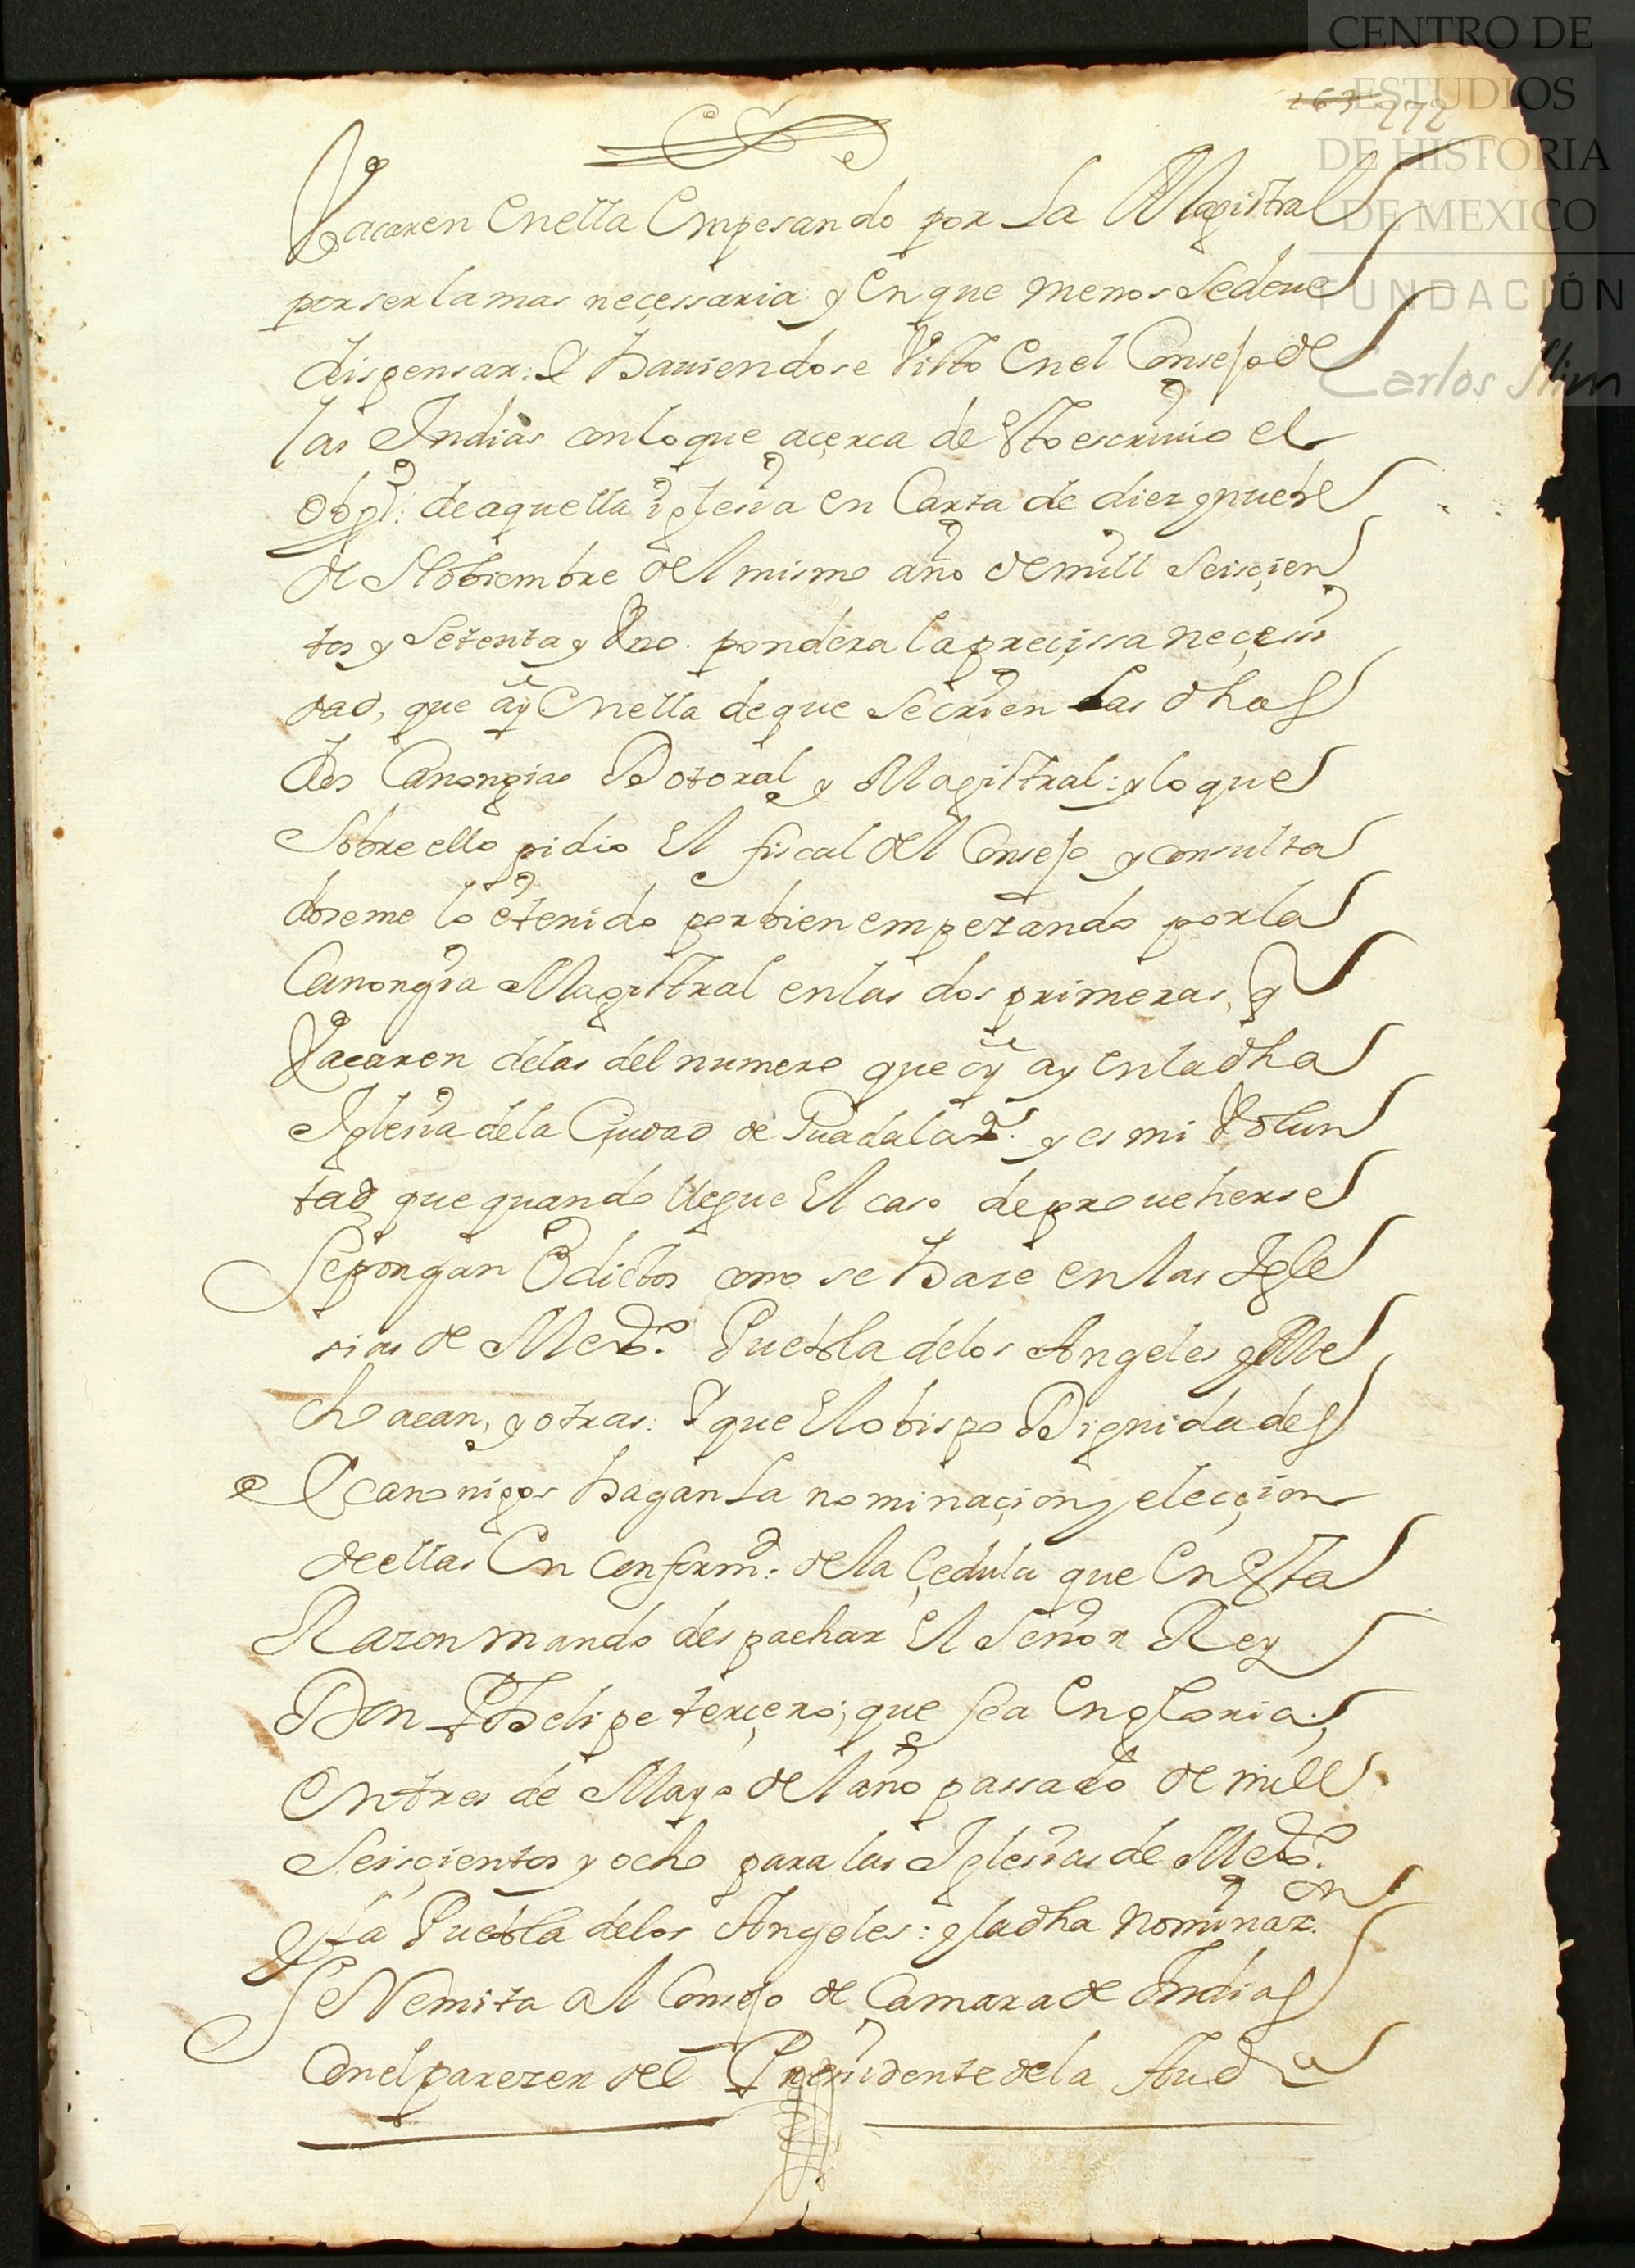 CENTRO DE
ESTUDIOS
DE HISTORIA
DE MEXICO
FUNDACIÓN
Carlos Slim
272
Vacaren en ella Empesando por La Magistral
por ser la mas neçessaria y En que menos se deue
dispensar. E hauiendose Visto En el Consejo de
las Indias con lo que açerca de Esto escriuio el
Obpo: de aquella iglesia en Carta de diez y nuebe
de Nobiembre del mismo año de mill Seisçien
tos y Setenta y Uno. pondera la preçissa neçessi
dad, que ay En ella de que se crien Las dhas
dos Canongias Dotoral y Magistral: y lo que
Sobre ello pidio El fiscal del Consejo y consulta
doseme lo e tenido por bien empezando por la
Canongia Magistral en las dos primeras, q
Vacaren de las del numero que oy ay en la dha
Iglesia de la Çiudad de Guadalaxa. y es mi Volun
tad que quando llegue El caso de proueherse
Se pongan Edictos como se haze en las Igle
sias de Mexco. Puebla de los Angeles y Me
choacan, y otras: E que El obispo Dignidades
E canonigos hagan La nominaçion y elecçion
de ellas En conformd. de la çedula que En Esta
Razon mando despachar El Señor Rey
Don Phelipe terçero; que sea En gloria;
En tres de Mayo del año passado de mill
Seisçientos y ocho para las Iglesias de Mexco.
y La Puebla de los Angeles: y la dha Nominazon.
Se Remita al Consejo de Camara de Indias
Con el parezer del Presidente de la Auda